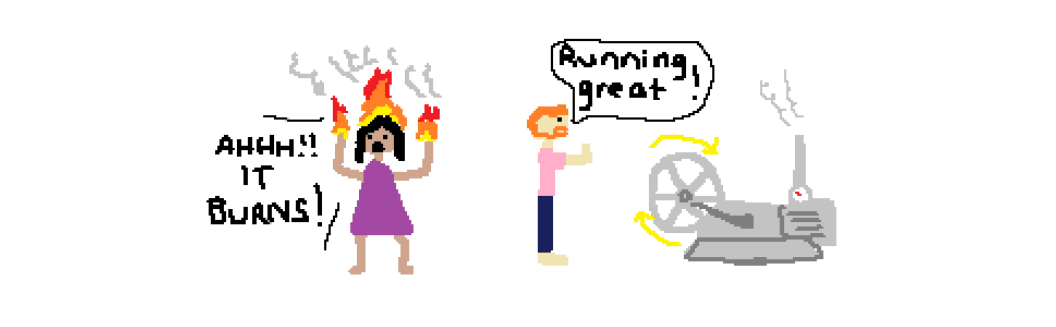 AHHH!!
IT
BURNS!
Running
great!